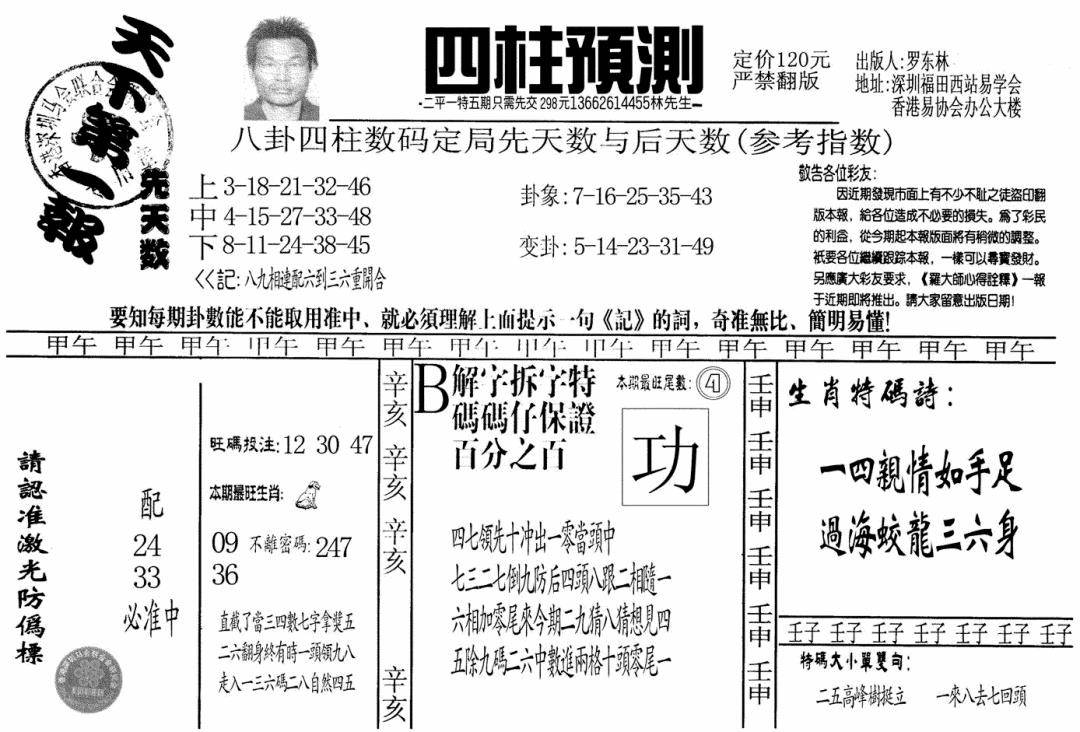 天下第一報
四柱預測
·二平一特五期只需先交298元13662614455林先生
定价120元
严禁翻版
出版人:罗东林
地址:深圳福田西站易学会
香港易协会办公大楼
八卦四柱数码定局先天数与后天数(参考指数)
先天数
上 3-18-21-32-46
中 4-15-27-33-48
下 8-11-24-38-45
<<記:八九相連配六到三六重開合
卦象:7-16-25-35-43
变卦:5-14-23-31-49
敬告各位彩友:
因近期發現市面上有不少不耻之徒盜印翻
版本報,給各位造成不必要的損失。爲了彩民
的利益,從今期起本報版面將有稍微的調整。
衹要各位繼續跟踪本報,一樣可以尋寶發財。
另應廣大彩友要求,《羅大師心得詮釋》一報
于近期即將推出。請大家留意出版日期!
要知每期卦數能不能取用准中、就必須理解上面提示一句《記》的詞,奇准無比、簡明易懂!
甲午 甲午 甲午 甲午 甲午 甲午 甲午 甲午 甲午 甲午 甲午 甲午 甲午 甲午 甲午
請認准激光防僞標
配
24
33
必准中
旺碼投注:12 30 47
本期最旺生肖:
09 不離密碼:247
36
直截了當三四數七字拿獎五
二六翻身終有時一頭領九八
走入一三六碼二八自然四五
辛亥
辛亥
辛亥
辛亥
B解字拆字特
碼碼仔保證
百分之百
本期最旺尾數:4
功
四七領先十冲出一零當頭中
七三二七倒九防后四頭八跟二相隨一
六相加零尾來今期二九猜八猜想見四
五除九碼二六中數進兩格十頭零尾一
壬申
壬申
壬申
壬申
壬申
壬申
生肖特碼詩:
一四親情如手足
過海蛟龍三六身
壬子 壬子 壬子 壬子 壬子 壬子 壬子
特碼大小單雙句:
二五高峰樹挺立 一來八去七回頭